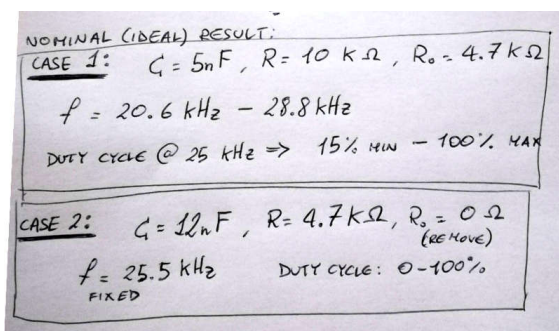 NOMINAL (IDEAL) RESULT:
CASE 1: C = 5nF, R = 10 KΩ, R₀ = 4.7KΩ
f = 20.6 kHz - 28.8 kHz
DUTY CYCLE @ 25 kHz ⇒ 15% MIN - 100% MAX
CASE 2: C = 12nF, R = 4.7KΩ, R₀ = 0 Ω
(REMOVE)
f = 25.5 kHz DUTY CYCLE: 0-100%
FIXED